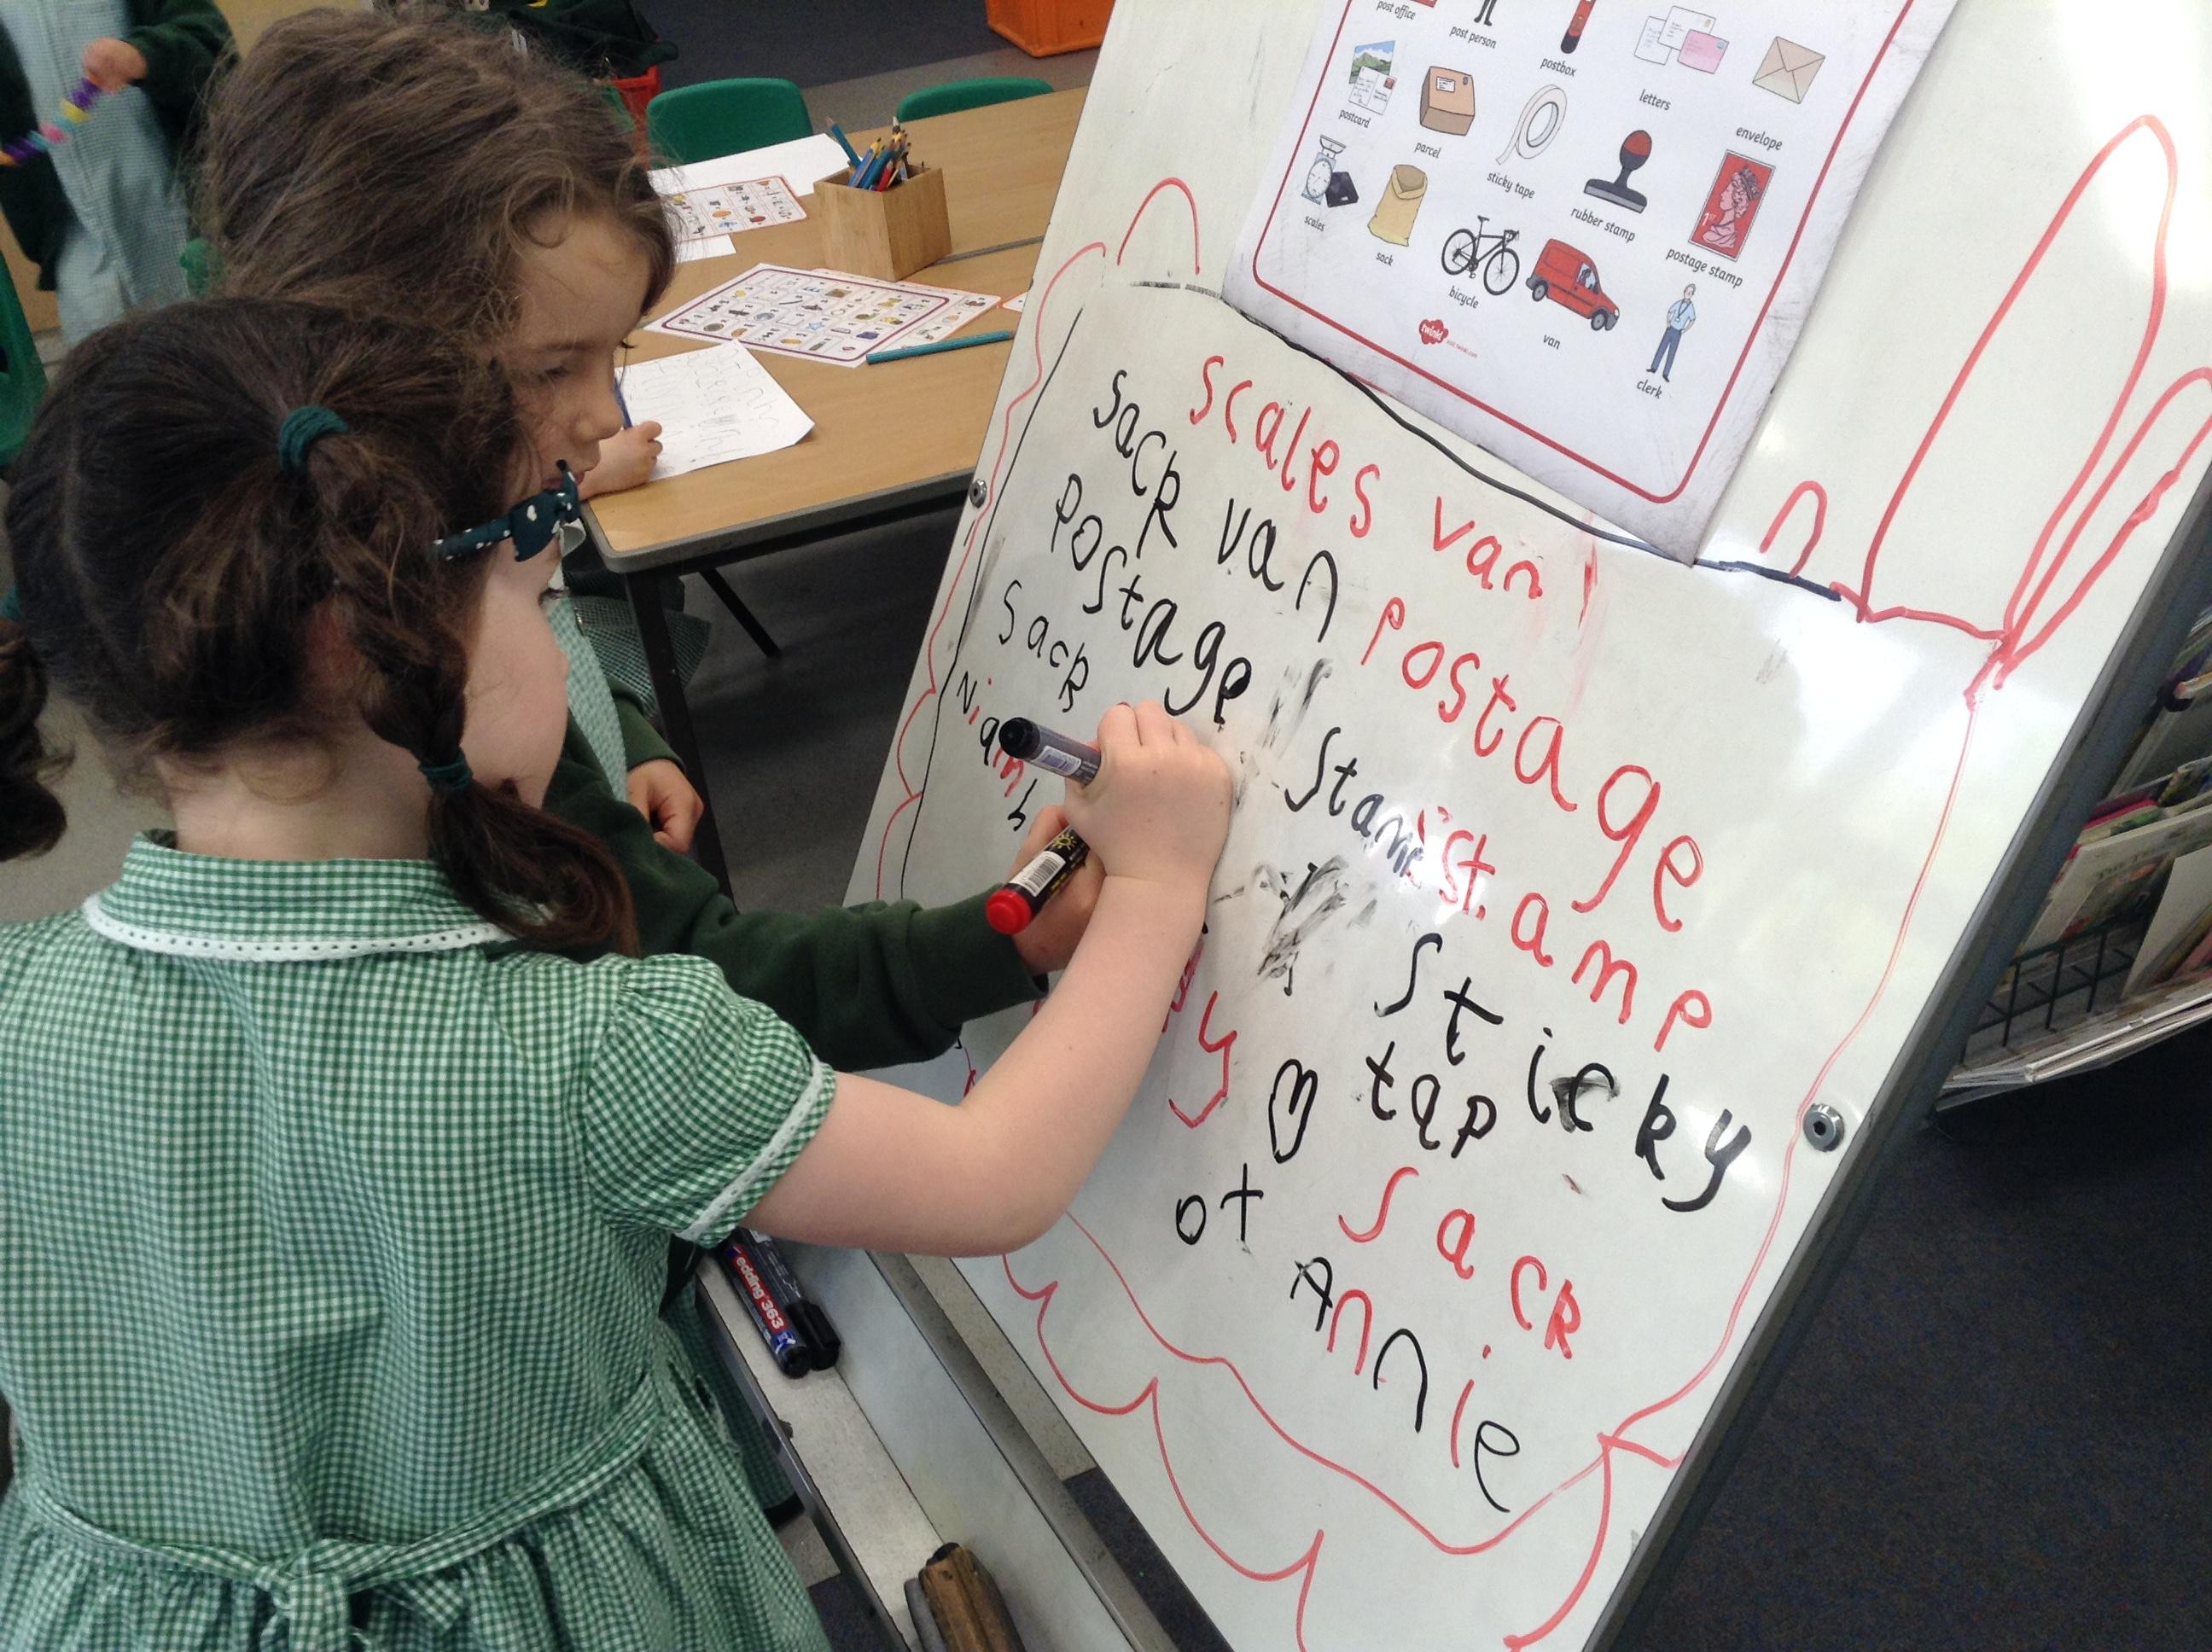 post office
post person
postbox
letters
envelope
postcard
parcel
sticky tape
rubber stamp
postage stamp
scales
sack
bicycle
van
clerk
twinkl
scales van
sack van postage
postage stamp
sack
Niamh
stam
sticky
tap
sack
ot
Annie
edding 363